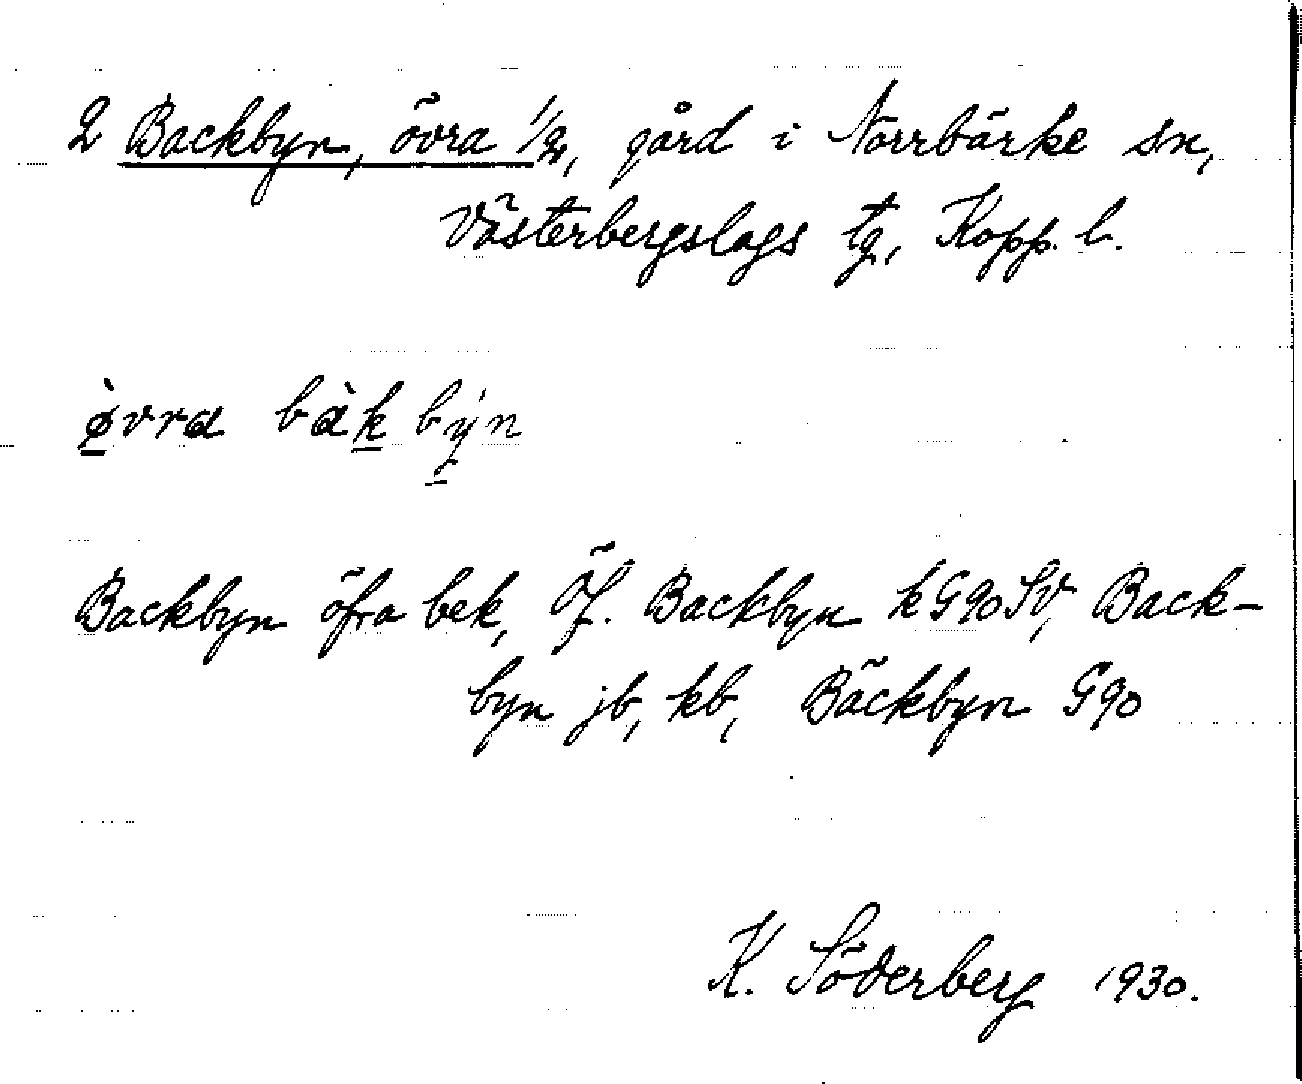 2 Backbyn, övra 1/2, gård i Norrbärke sn,
Västerbergslags tg, Kopp. l.
ø̀vra bàk býn
Backbyn öfra bek, Öf. Backbyn k G90SV, Back-
byn jb, kb, Bäckbyn G90
K. Söderberg 1930.